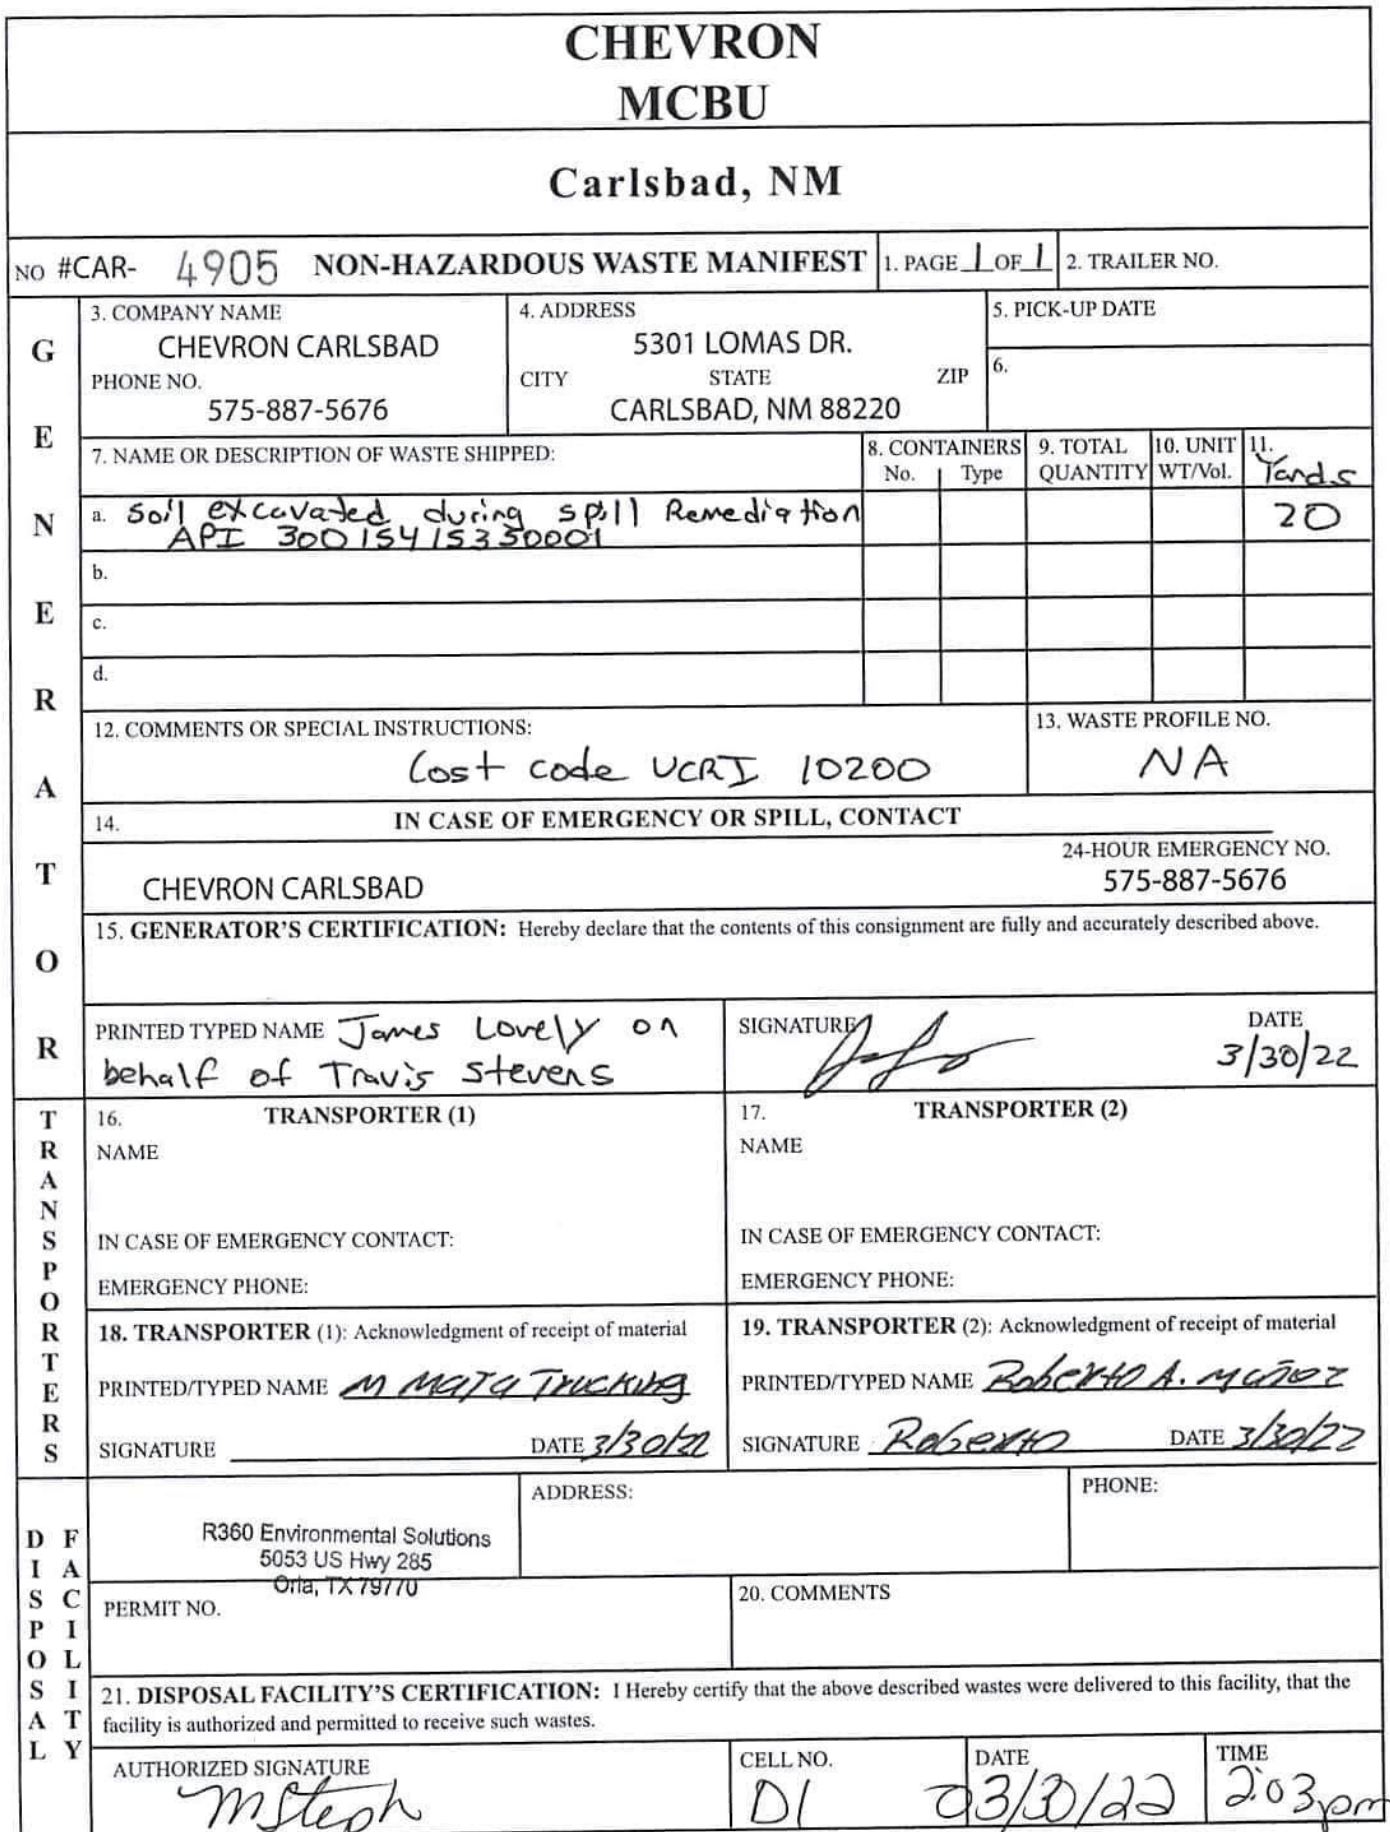 CHEVRON
MCBU
Carlsbad, NM
NO #CAR- 4905 NON-HAZARDOUS WASTE MANIFEST 1. PAGE 1 OF 1 2. TRAILER NO.
GENERATOR
3. COMPANY NAME
CHEVRON CARLSBAD
PHONE NO.
575-887-5676
4. ADDRESS
5301 LOMAS DR.
CITY STATE ZIP
CARLSBAD, NM 88220
5. PICK-UP DATE
6.
7. NAME OR DESCRIPTION OF WASTE SHIPPED:
8. CONTAINERS
No. Type
9. TOTAL
QUANTITY
10. UNIT
WT/Vol.
11.
Yards
a. Soil excavated during spill Remediation
API 30015415350001
20
b.
c.
d.
12. COMMENTS OR SPECIAL INSTRUCTIONS:
Cost code UCRI 10200
13. WASTE PROFILE NO.
NA
14. IN CASE OF EMERGENCY OR SPILL, CONTACT
24-HOUR EMERGENCY NO.
CHEVRON CARLSBAD 575-887-5676
15. GENERATOR'S CERTIFICATION: Hereby declare that the contents of this consignment are fully and accurately described above.
PRINTED TYPED NAME James Lovely on
behalf of Travis Stevens
SIGNATURE
DATE
3/30/22
TRANSPORTERS
16. TRANSPORTER (1)
NAME
IN CASE OF EMERGENCY CONTACT:
EMERGENCY PHONE:
17. TRANSPORTER (2)
NAME
IN CASE OF EMERGENCY CONTACT:
EMERGENCY PHONE:
18. TRANSPORTER (1): Acknowledgment of receipt of material
PRINTED/TYPED NAME M Mata Trucking
SIGNATURE DATE 3/30/22
19. TRANSPORTER (2): Acknowledgment of receipt of material
PRINTED/TYPED NAME Roberto A. Muñoz
SIGNATURE Roberto DATE 3/30/22
DISPOSAL FACILITY
R360 Environmental Solutions
5053 US Hwy 285
Orla, TX 79770
ADDRESS:
PHONE:
PERMIT NO.
20. COMMENTS
21. DISPOSAL FACILITY'S CERTIFICATION: I Hereby certify that the above described wastes were delivered to this facility, that the
facility is authorized and permitted to receive such wastes.
AUTHORIZED SIGNATURE
MSteph
CELL NO.
D1
DATE
03/30/22
TIME
2:03pm